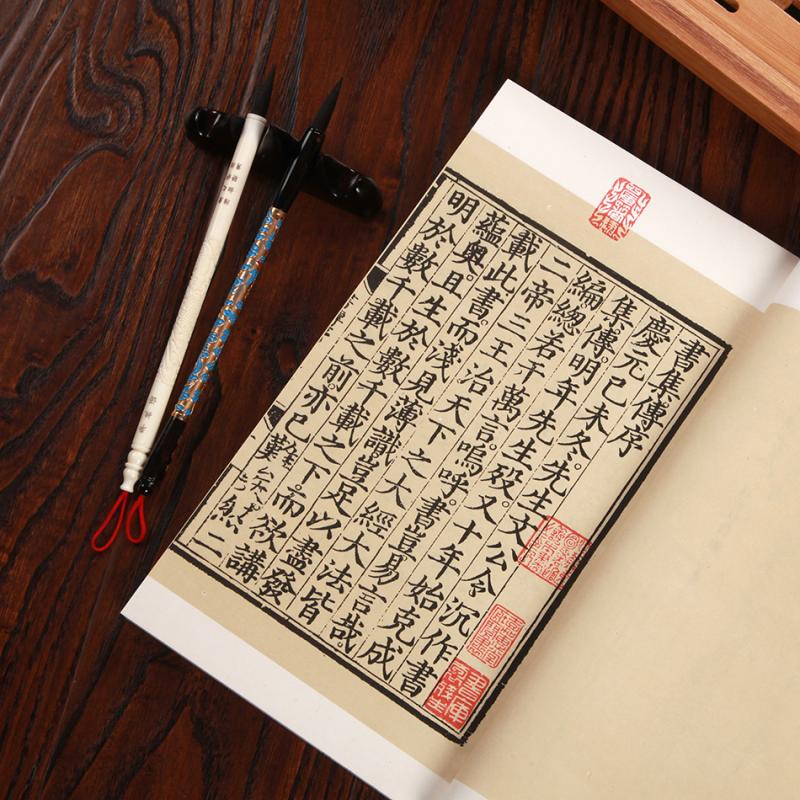 書集傳序
慶元己未冬。先生文公令沉作書
集傳。明年先生歿。又十年始克成
編。總若干萬言。嗚呼。書豈易言哉。
二帝三王治天下之大經大法皆
載此書。而淺見薄識豈足以盡發
蘊奧。且生於數千載之下。而欲講
明於數千載之前。亦已難矣。然二